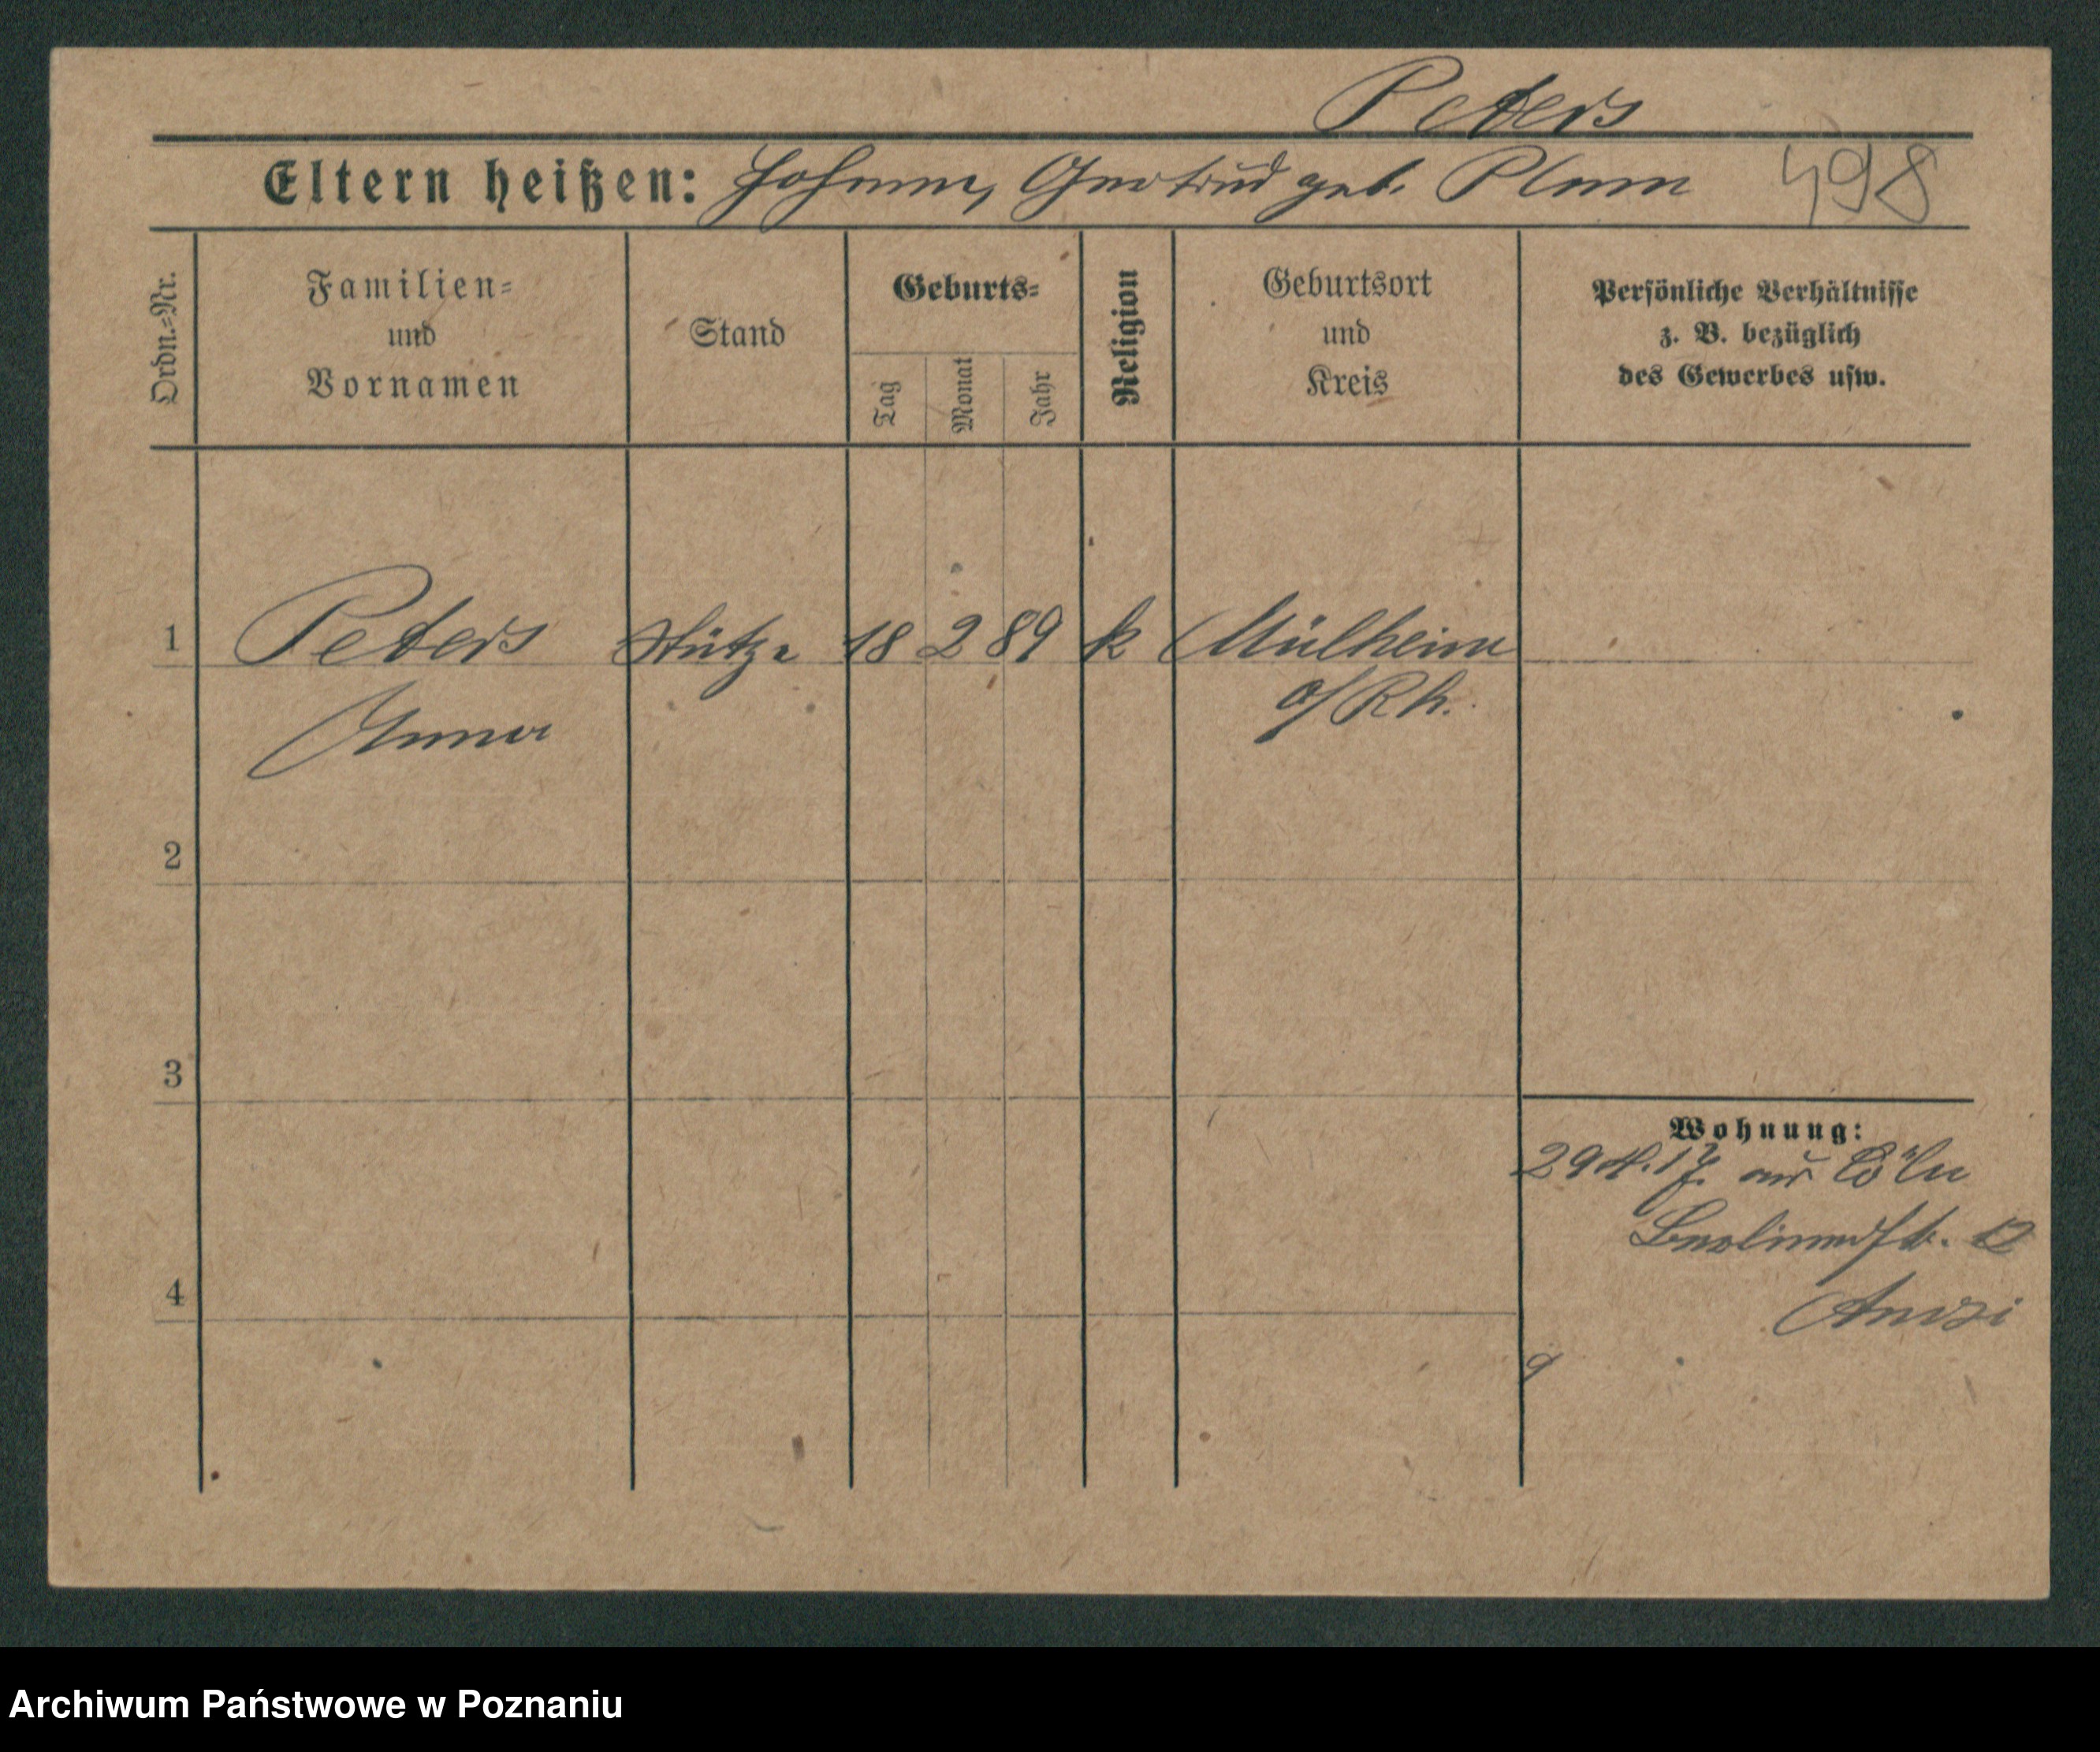 Peters
Eltern heißen: Johann, Gertrud geb. Plum 498
Ordn.=Nr.
Familien=
und
Vornamen
Stand
Geburts=
Tag
Monat
Jahr
Religion
Geburtsort
und
Kreis
Persönliche Verhältnisse
z. B. bezüglich
des Gewerbes usw.
1 Peters Stütze 18 2 89 k Mülheim
Anna a/Rh.
2
3
4
Wohnung:
29 4. 17. aus Cöln
Berlinerstr. 12
Archiwum Państwowe w Poznaniu